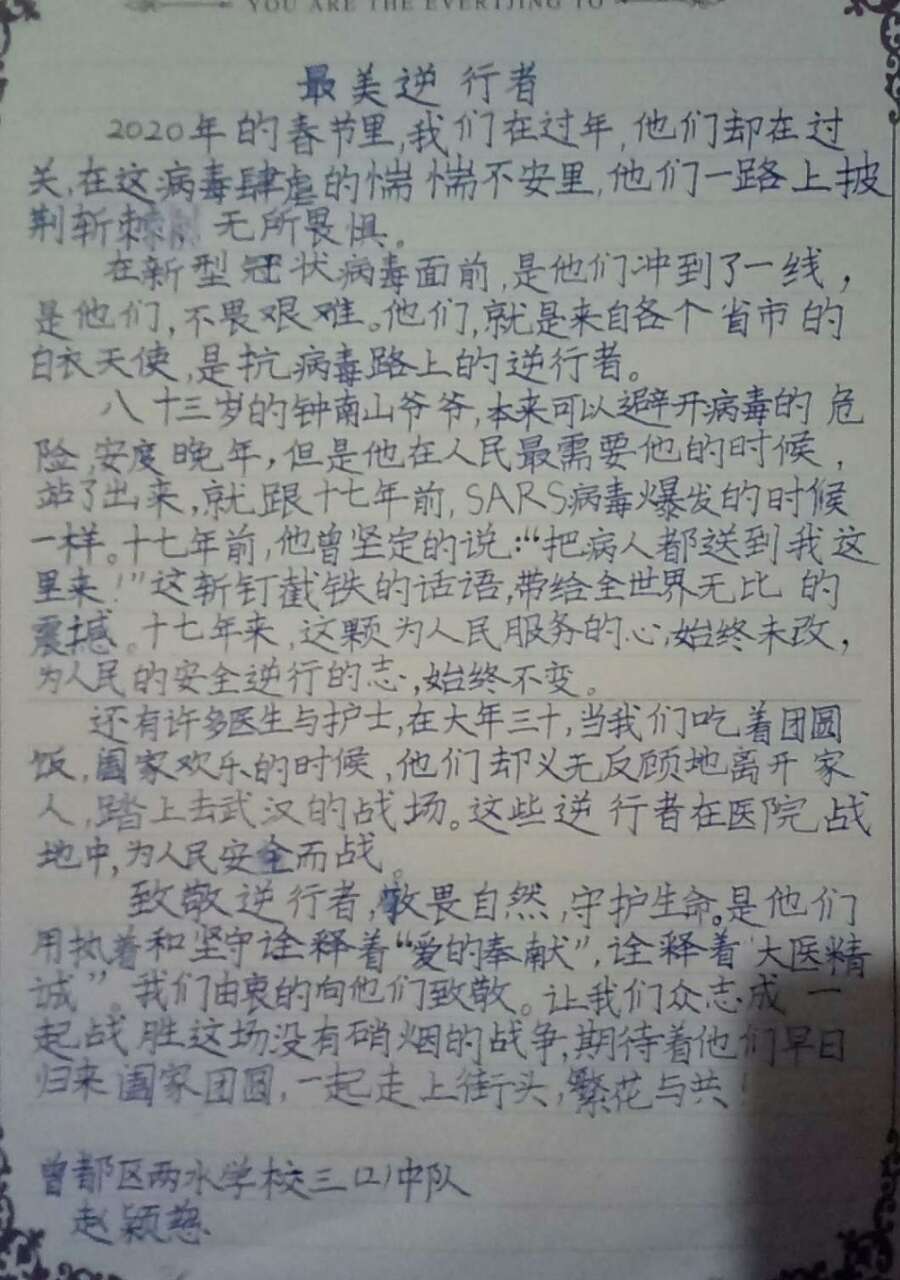 YOU ARE THE EVERTJING TO
最美逆行者
2020年的春节里,我们在过年,他们却在过
关,在这病毒肆虐的惴惴不安里,他们一路上披
荆斩棘,无所畏惧。
在新型冠状病毒面前,是他们冲到了一线,
是他们,不畏艰难。他们,就是来自各个省市的
白衣天使,是抗病毒路上的逆行者。
八十三岁的钟南山爷爷,本来可以避开病毒的危
险,安度晚年,但是他在人民最需要他的时候,
站了出来,就跟十七年前,SARS病毒爆发的时候
一样。十七年前,他曾坚定的说:“把病人都送到我这
里来!”这斩钉截铁的话语,带给全世界无比的
震撼。十七年来,这颗为人民服务的心,始终未改,
为人民的安全逆行的志,始终不变。
还有许多医生与护士,在大年三十,当我们吃着团圆
饭,阖家欢乐的时候,他们却义无反顾地离开家
人,踏上去武汉的战场。这些逆行者在医院战
地中,为人民安全而战。
致敬逆行者,敬畏自然,守护生命。是他们
用执着和坚守诠释着“爱的奉献”,诠释着“大医精
诚”。我们由衷的向他们致敬。让我们众志成一
起战胜这场没有硝烟的战争,期待着他们早日
归来阖家团圆,一起走上街头,繁花与共!
曾都区两水学校三(2)中队
赵颖